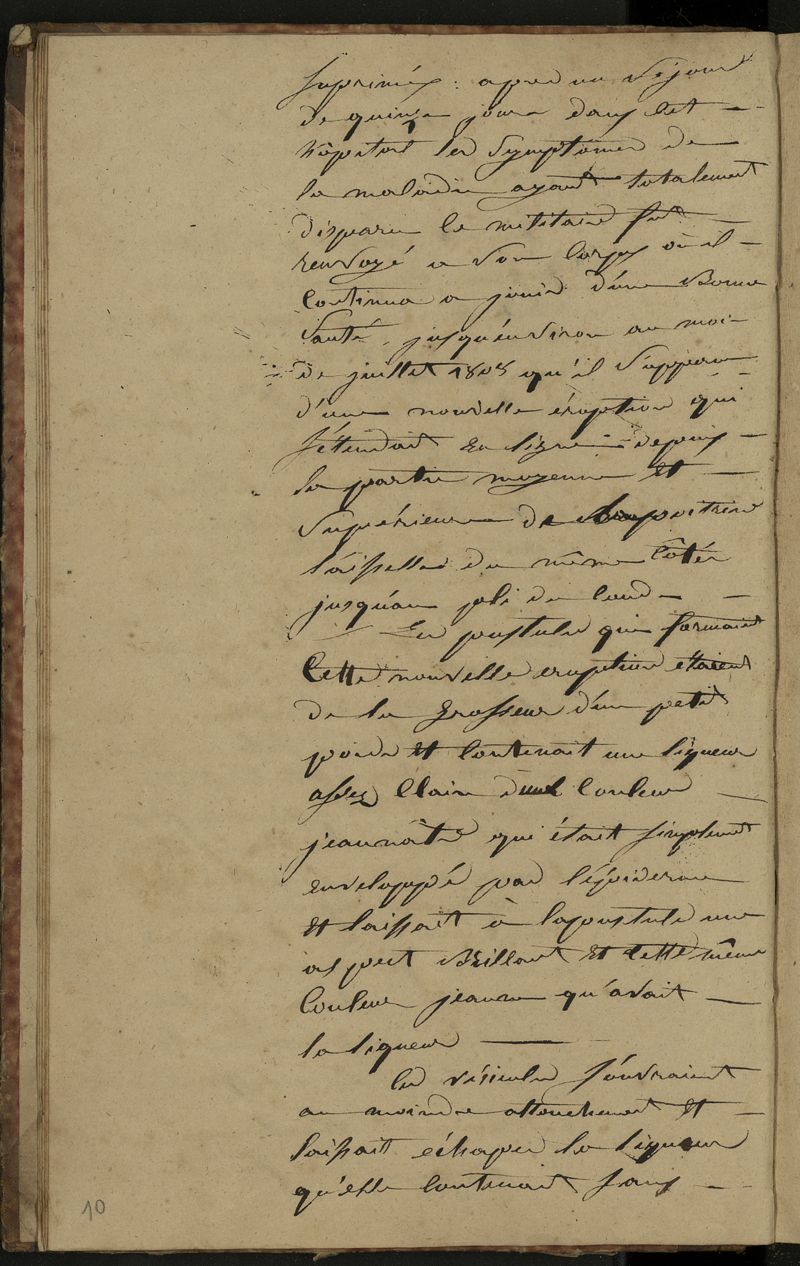 suprimés : apres un séjour
de quinze jours dans cet
hôpital les symptomes de
la maladie ayant totalement
disparu le militaire fut
renvoyé a son corps où il
continua a jouir d'une bonne
santé, jusqu'environ au moi
de juillet 1808 qu'il s'apperçu
d'une nouvelle éruption qui
s'étendait en ligne depuis
la partie moyenne et
supérieure de la poitrine
l'aisselle du même côtés
jusqu'au pli du coude
Les pustules qui formaient
cette nouvelle eruption étaient
de la grosseur d'un petit
poids et contenait une liqueur
assez clair d'une couleur
jeaunâtre qui était simplement
enveloppé par l'épiderme
et laissait à la pustule une
aspect brillant et cette même
couleur jeaune qu'avait
la liqueur
les vésicules s'ouvraient
au moindre attouchement et
laissait echaper la liqueur
qu'elle contenait sans
10